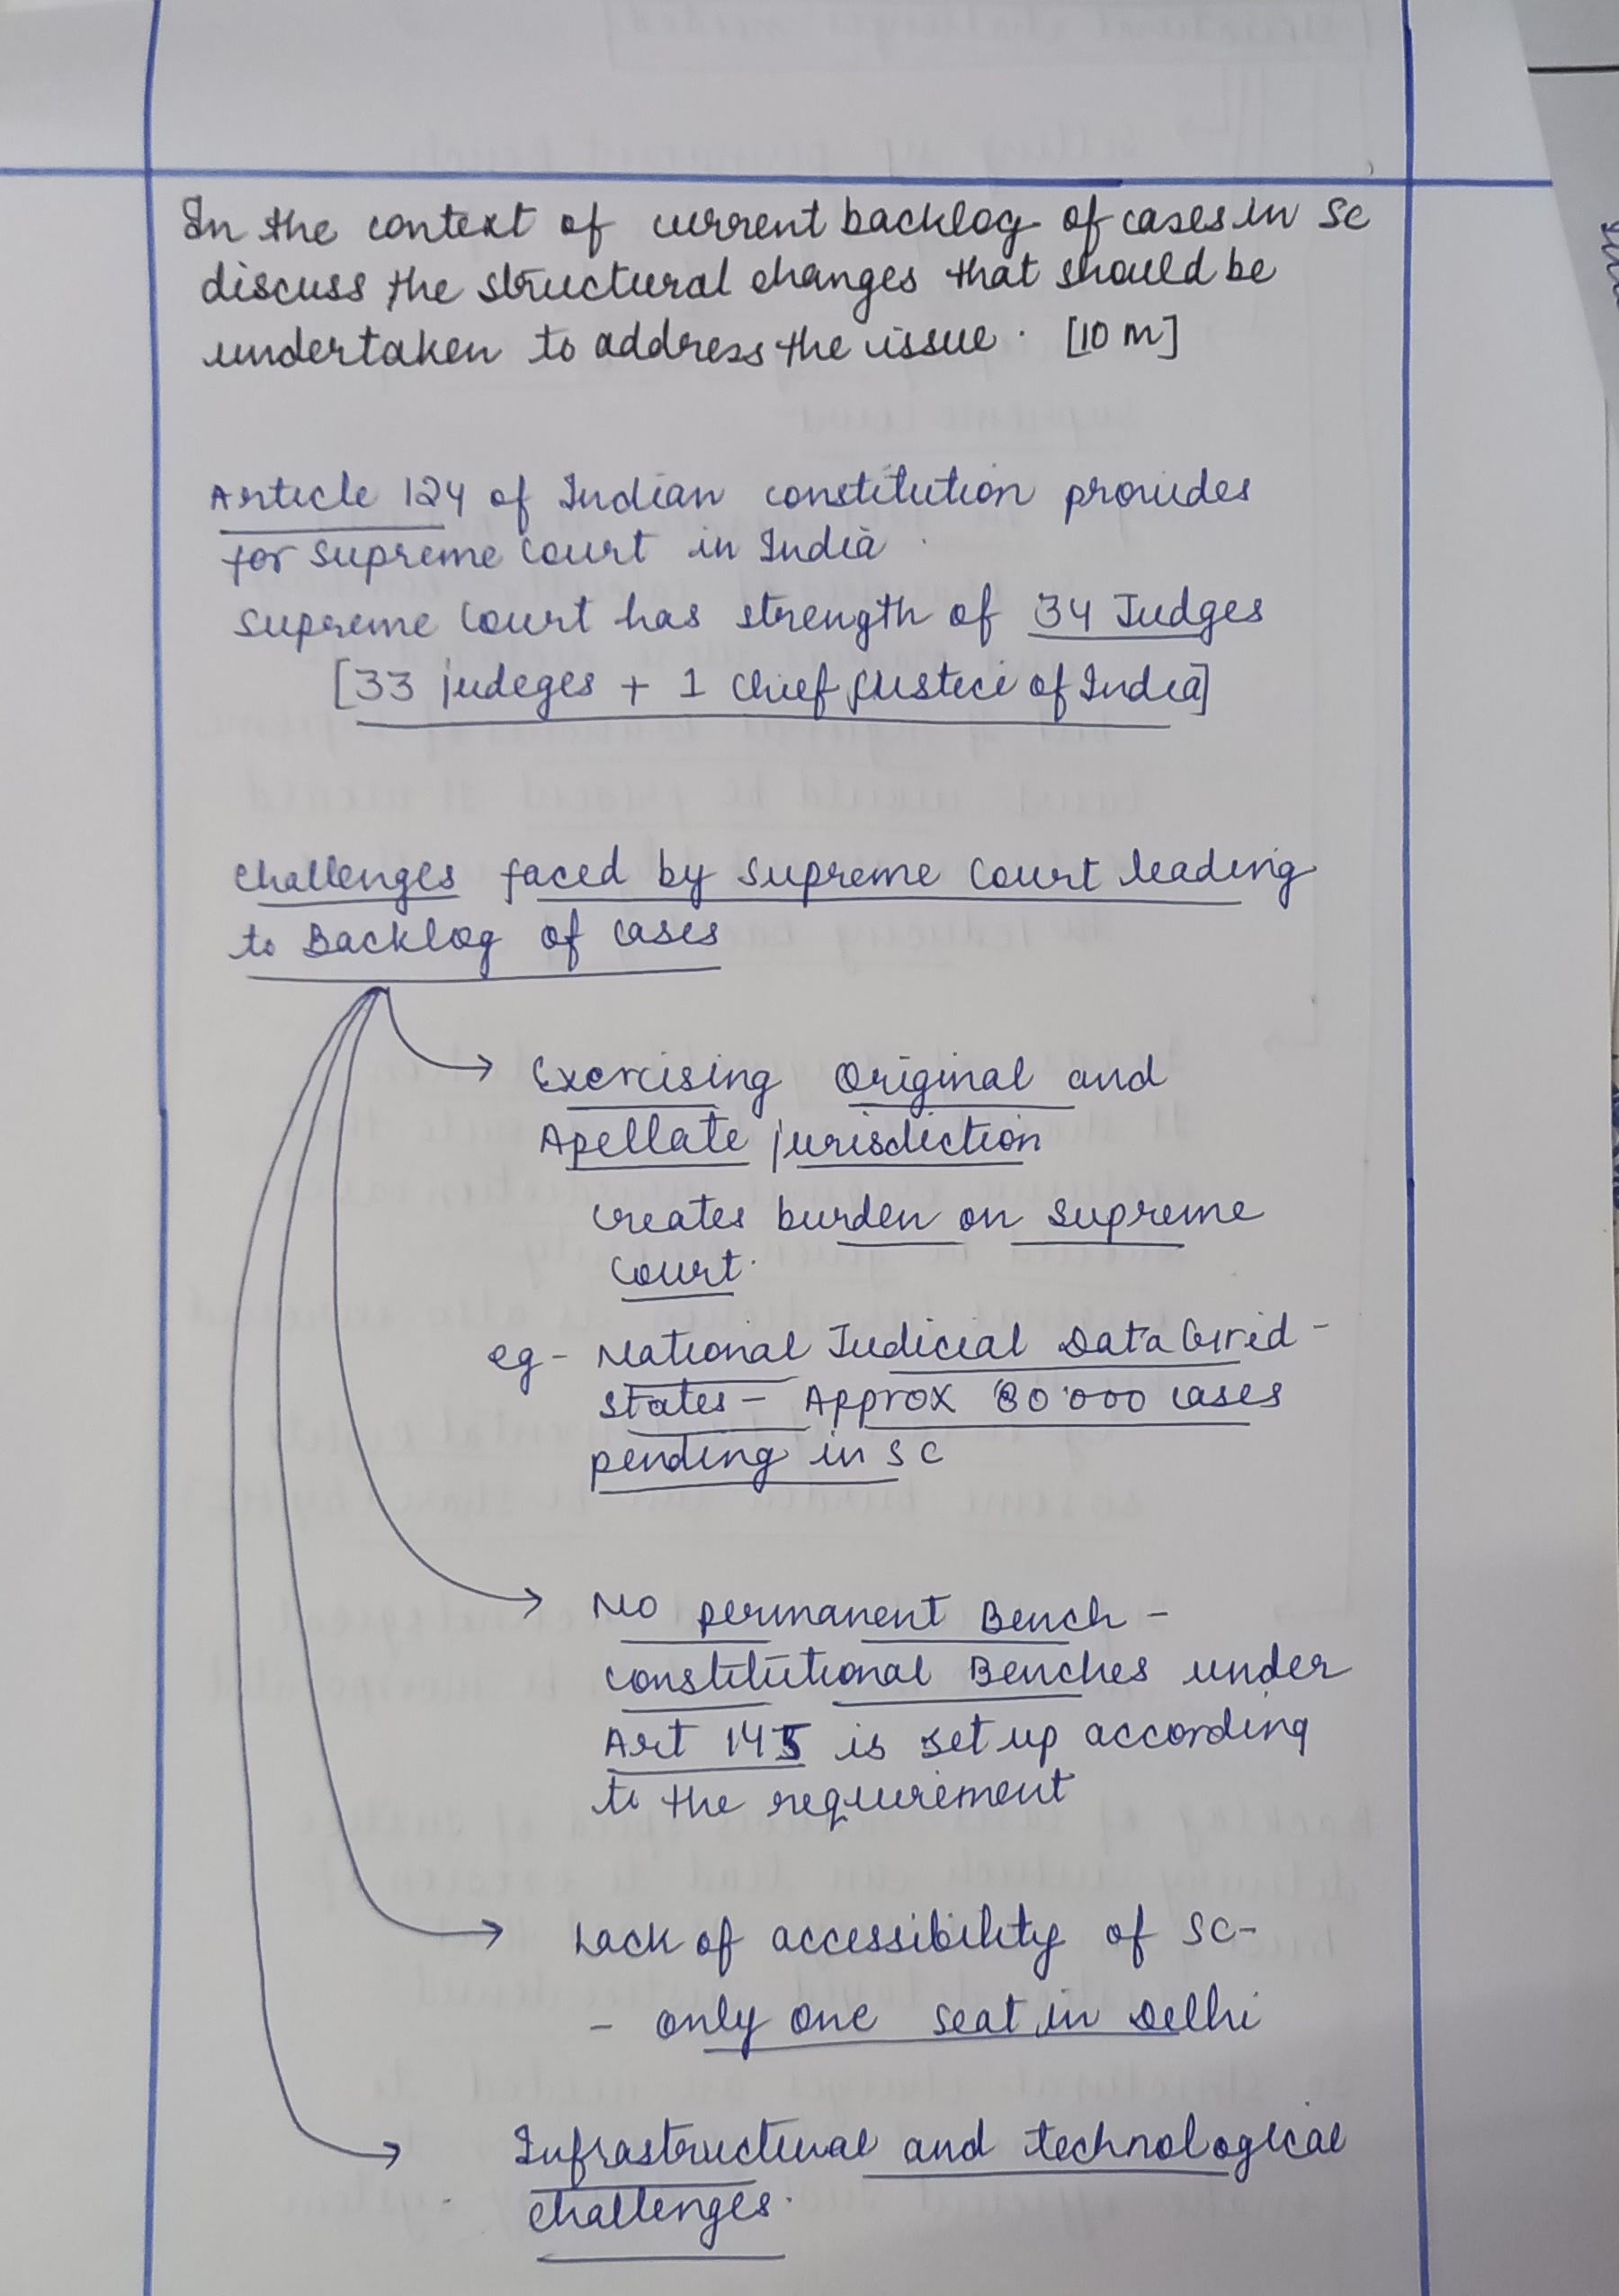 In the context of current backlog of cases in SC
discuss the structural changes that should be
undertaken to address the issue. [10 m]
Article 124 of Indian constitution provides
for supreme court in India.
Supreme Court has strength of 34 Judges
[33 judeges + 1 Chief Justice of India]
Challenges faced by Supreme Court leading
to Backlog of cases
Exercising Original and
Apellate jurisdiction
creates burden on Supreme
Court.
eg - National Judicial Data Grid -
states - Approx 80'000 cases
pending in SC
No permanent Bench -
constitutional Benches under
Art 145 is set up according
to the requirement
Lack of accessibility of SC-
- only one seat in Delhi
Infrastructural and technological
challenges.